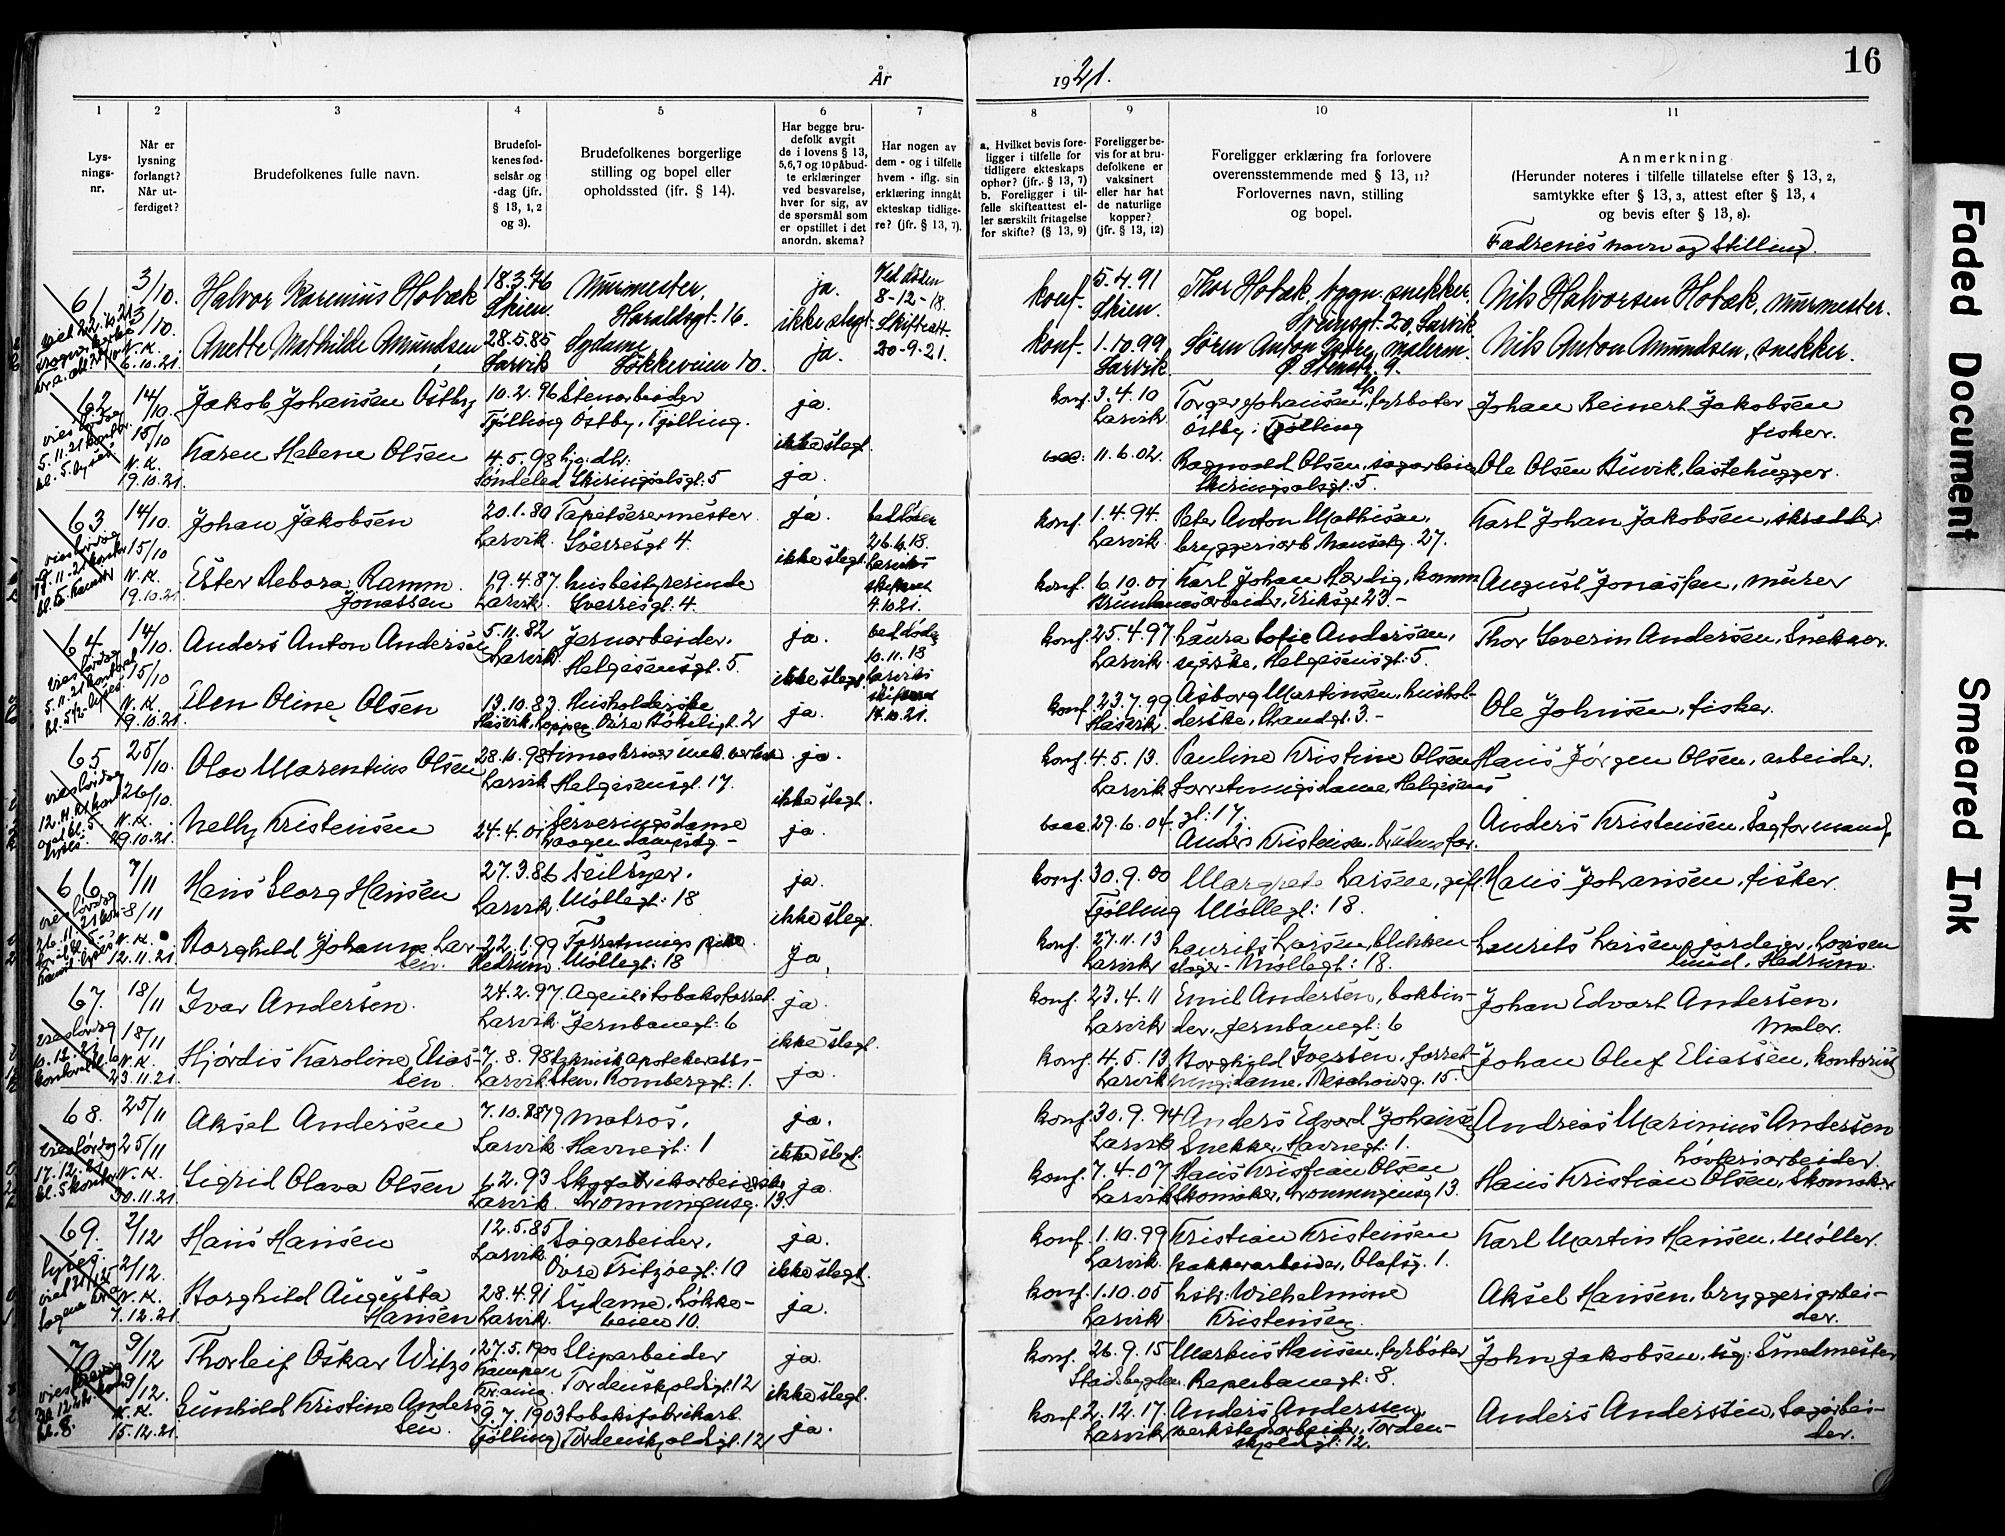 År 1921.
16
1
2
3
4
5
6
7
8
9
10
11
Lys-
nings-
nr.
Når er
lysning
forlangt?
Når ut-
ferdiget?
Brudefolkenes fulle navn.
Brudefol-
kenes fød-
selsår og
-dag (jfr.
§ 13, 1, 2
og 3).
Brudefolkenes borgerlige
stilling og bopel eller
opholdssted (jfr. § 14).
Har begge bru-
defolk avgit
de i lovens § 13,
5, 6, 7 og 10 påbud-
te erklæringer
ved besvarelse,
hver for sig, av
de spørsmål som
er opstillet i det
anordn. skema?
Har nogen av
dem - og i tilfelle
hvem - iflg. sin
erklæring inngåt
ekteskap tidlige-
re? (jfr. § 13, 7).
a. Hvilket bevis fore-
ligger i tilfelle for
tidligere ekteskaps
ophør? (jfr. § 13, 7)
b. Foreligger i til-
felle skifteattest el-
ler særskilt fritagelse
for skifte? (§ 13, 9)
Foreligger be-
vis for at bru-
defolkene er
vaksinert
eller har hat
de naturlige
kopper?
(jfr. § 13, 12)
Foreligger erklæring fra forlovere
overensstemmende med § 13, 11?
Forlovernes navn, stilling
og bopel.
Anmerkning
(Herunder noteres i tilfelle tillatelse efter § 13, 2,
samtykke efter § 13, 3, attest efter § 13, 4
og bevis efter § 13, 8).
Fædrenes navn og stilling.
61
3/10.
3/10
N.K.
6.10.21.
Halvor Karenius Hobæk
18.3.76
Skien.
Murmester,
Haraldsgt. 16.
ja.
ikke slegt.
Ved døden
8-12-18.
Skifteatt.
20-9-21.
konf.
5.4.91
Skien.
Thor Hobæk, bygn.snekker,
Sveinsgt. 20, Larvik
Nils Halvorsen Hobæk, murmester.
Anette Mathilde Amundsen
28.5.85
Larvik
Sydame
Løkkeveien 10.
ja.
konf.
1.10.99
Larvik.
Søren Anton malerm.
Ø. Stenstr. 9.
Nils Anton Amundsen, snekker.
62
14/10.
15/10
N.K.
19.10.21.
Jakob Johansen Østby
10.2.96
Tjølling
Stenarbeider
Østby, Tjølling.
ja.
ikke slegt.
konf.
3.4.10
Larvik
Torger Johansen, fyrbøter
Østby i Tjølling
Johan Reinert Jakobsen
fisker.
Karen Helene Olsen
4.5.98
Søndeled
Skiringsalsgt. 5
ja.
11.6.02.
Ragnvald Olsen, sagarbeider
Skiringsalsgt. 5.
Ole Olsen Buvik, lastehugger.
63
14/10.
15/10
N.K.
19.10.21
Johan Jakobsen
20.1.80
Larvik.
Tapetserermester
Sverresgt 4.
ja.
ikke slegt
ved døden
26.6.18.
Larviks
skifterett
4.10.21.
konf.
1.4.94.
Larvik.
Peter Anton Mathisen,
bryggeriarb. 27.
Karl Johan Jakobsen, skrædder
Ester Debora Ramm
Jonassen
19.4.87
Larvik.
husbestyrerinde
Sverresgt. 4.
konf.
6.10.01
Brunlanes
Karl Johan Herdig, komm
arbeider, Eriksgt 23.-
August Jonassen, murer
64
14/10.
15/10
N.K.
19.10.21.
Anders Anton Andersen
5.11.82
Larvik.
Jernarbeider.
Helgesensgt. 5.
ja.
ikke slegt.
ved døden
10.11.18
Larviks
skifterett
14.10.21.
konf.
25.4.97
Larvik.
Laura Sofie Andersen,
syerske, Helgesensgt. 5.
Thor Severin Andersen, Snekker.
Elen Oline Olsen
13.10.83
Hasvik, Loppen.
Husholderske
Øvre Bøkeligt. 2
ja.
konf.
23.7.99
Hasvik.
Asborg Martinsen, hushol-
derske, Strandgt. 3.-
Ole Johnsen, fisker.
65
25/10.
26/10.
N.K.
29.10.21.
Olav Marentius Olsen
Larvik
timeskriver mek.verksted
Helgesensgt. 17.
ja.
ikke slegt.
konf.
4.5.13.
Larvik.
Pauline Kristine Olsen
forretningsdame, Helgesens
gt. 17.
Hans Jørgen Olsen, arbeider.
Nelly Kristensen
24.4.01
Serveringsdame
ja.
29.6.04.
Anders Kristensen, brudens far.
Anders Kristensen, Sagformand.
66
7/11
8/11
N.K.
12.11.21
Hans Georg Hansen
27.3.86
Larvik.
Seilsyer.
Møllegt: 18
ja.
ikke slegt.
konf.
30.9.00
Tjølling
Margrete Larsen, gift.
Møllegt: 18.
Hans Johansen, fisker.
Borghild Johanne Lar-
sen.
22.1.99
Hedrum.
Forretnings
Møllegt: 18
ja.
konf.
27.11.13
Larvik
Laurits Larsen, blikken
slager - Møllegt: 18.
Laurits Larsen, jordeier, Louisen
lund. Hedrum.
67.
18/11
18/11
N.K.
23.11.21.
Ivar Andersen.
24.2.97
Larvik.
Agent i tobaksforret.
Jernbanegt: 6
ja.
ikke slegt.
konf.
23.4.11
Larvik
Emil Andersen, bokbin-
der, Jernbanegt: 6
Johan Edvart Andersen.
Maler.
Hjørdis Karoline Elias-
sen.
7.8.98
Larvik
apotekerassi-
sten, Rombergsgt. 1.
ja.
konf.
4.5.13
Larvik
Borghild Iversen, forret-
ningsdame. 15.
Johan Oluf Eliassen, kontorist
68.
25/11
25/11
N.K.
30.11.21.
Aksel Andersen
7.10.79
Larvik.
Matros.
Havnegt: 1
ja.
ikke slegt.
konf.
30.9.94
Larvik
Anders Edvard Johansen
Snekker, Havnegt: 1.
Andreas Marinius Andersen
Løvteriarbeider
Sigrid Olava Olsen
6.2.93
Larvik.
Skofabrikarbeiderske
Dronningensg. 13.
ja
konf.
7.4.07
Larvik
Hans Kristian Olsen
Skomaker, Dronningensg 13.
Hans Kristian Olsen, Skomaker
69.
2/12
2/12.
N.K.
7.12.21.
Hans Hansen
12.5.85
Larvik.
Sagarbeider.
Øvre Fritzøegt: 10
ja.
ikke slegt.
konf.
1.10.99
Larvik.
Kristian Kristensen
Pakkerarbeider, Olafsg. 1.
Karl Martin Hansen, Møller.
Borghild Augusta
Hansen
28.4.91
Larvik.
Sydame, Løkke-
veien 10.
ja.
konf.
1.10.05
Larvik
Wilhelmine
Kristensen.
Aksel Hansen, bryggeriarbei-
der.
70
9/12
9/12.
N.K.
15.12.21.
Thorleif Oskar Witzø
27.5.1900
Kampen
Kr.ania.
Sliparbeider
Tordenskjoldsgt. 12
ja.
ikke slegt.
konf.
26.9.15
Stadsbygden.
Markus Hansen, fyrbøter
Reperbanegt: 8.
John Jakobsen, Smedmester
Gunhild Kristine Anders-
sen.
9.7.1903
Tjølling.
tobaksfabrikarb.
Tordenskjoldsgt. 12
ja.
konf.
2.12.17.
Larvik
Anders Anderssen,
verkstedarbeider, Torden-
skjoldsgt: 12.
Anders Anderssen, Sagarbei-
der.
Faded Document
Smeared Ink